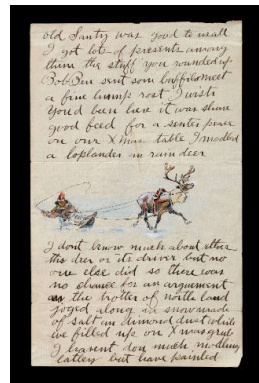 old Santy was good to us all
I got lots of presents among
them the stuff you rounded up
Bob Ben sent som buffalo meet
a fine hump rost I wish
you'd been here it was shure
good feed for a senter peace
on our Xmas table I modled
a loplander in raindeer
I dont know much about ether
the deer or its driver but no
one else did so there was
no chance for an arguement
as the trotter of north land
joged along in snow made
of salt an dimond dust while
we filled up on Xmas grub
I havent don much modling
lattery but have painted